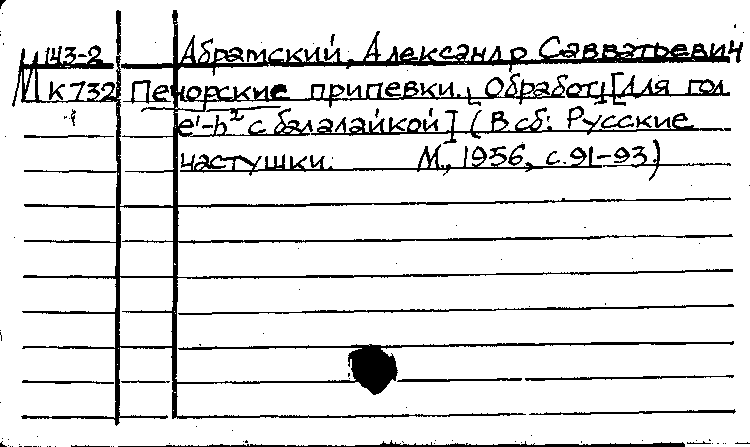 М 143-2 Абрамский, Александр Савватьевич
К 732 Печорские припевки. Обработ. [Для гол
e¹-h² с балалайкой] (В сб: Русские
частушки. М., 1956, с. 91-93.)